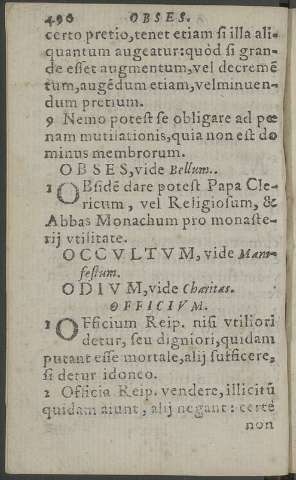 490 OBSES.
certo pretio, tenet etiam si illa ali-
quantum augeatur: quòd si gran-
de esset augmentum, vel decremē
tum, augēdum etiam, vel minuen-
dum pretium.
9 Nemo potest se obligare ad pœ
nam mutilationis, quia non est do
minus membrorum.
OBSES, vide Bellum..
1 OBsidē dare potest Papa Cle-
ricum, vel Religiosum, &
Abbas Monachum pro monaste-
rij vtilitate.
OCCVLTVM, vide Mani-
festum.
ODIVM, vide Charitas.
OFFICIVM.
1 OFficium Reip. nisi vtiliori
detur, seu digniori, quidam
putant esse mortale, alij sufficere,
si detur idoneo.
2 Officia Reip. vendere, illicitū
quidam aiunt, alij negant: certè
non